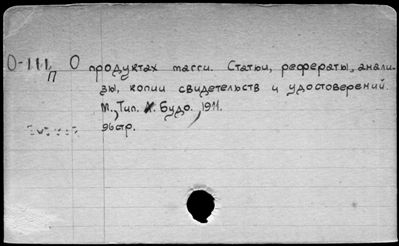 О-111 О продуктах тасси. Статьи, рефераты, анали-
П
зы, копии свидетельств и удостоверений.
М., Тип. К. Будо., 1911.
96стр.